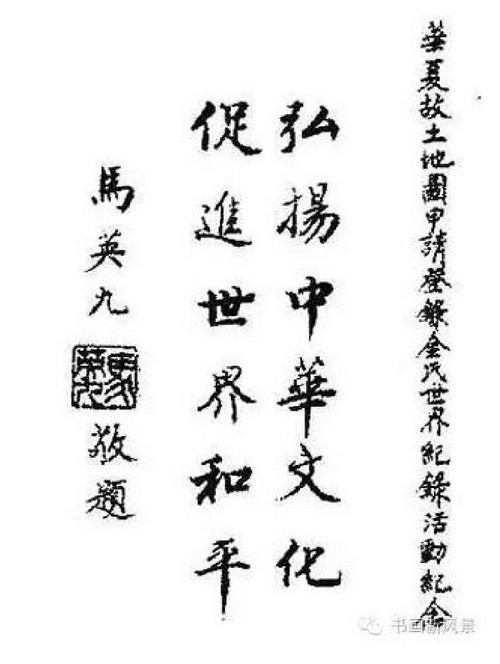 華夏故土地圖申請登錄金氏世界紀錄活動紀念
弘揚中華文化
促進世界和平
馬英九
敬題
书画新风景